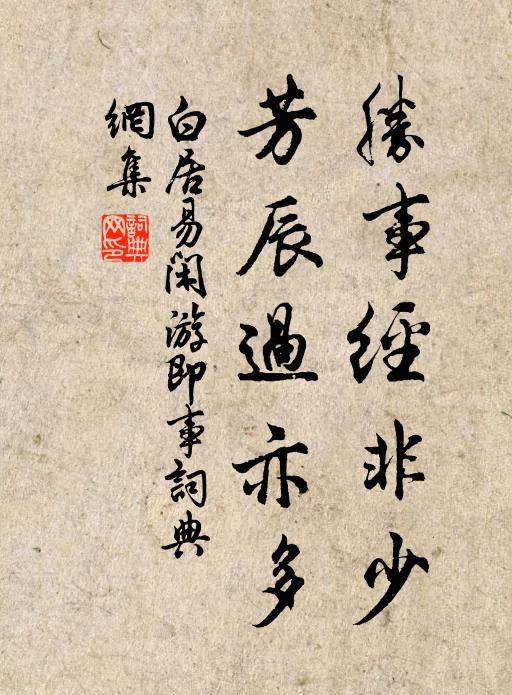 勝事經非少
芳辰過亦多
白居易閑游即事詞典
網集
詞典網印